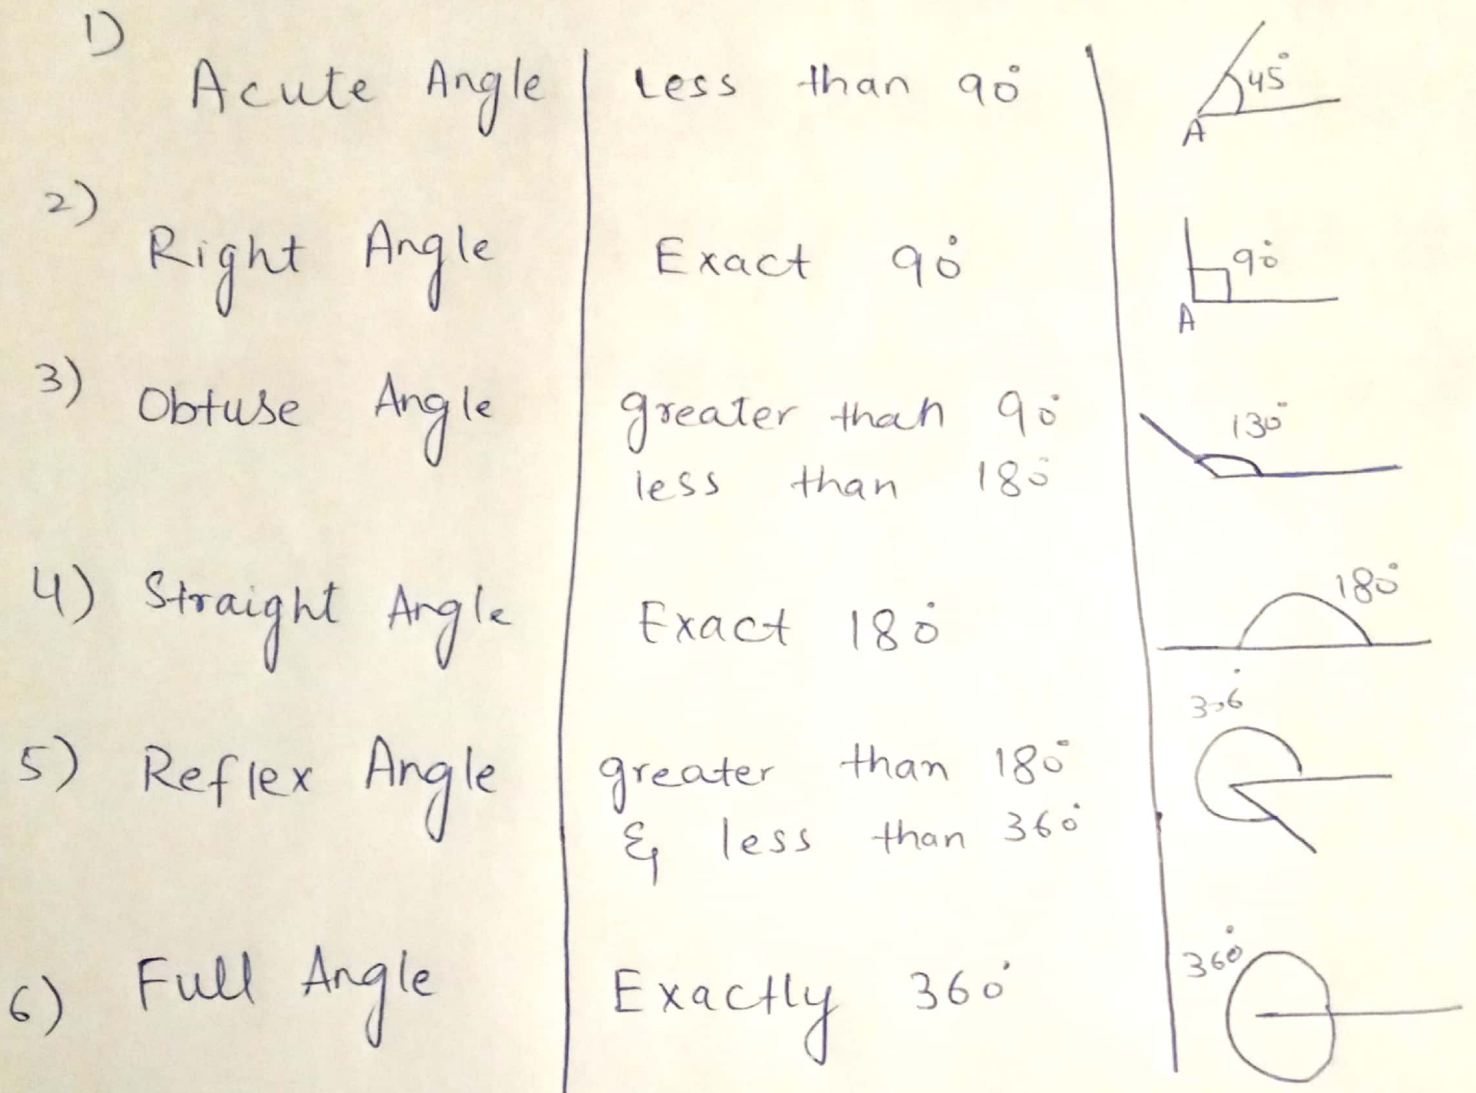 1)
Acute Angle Less than 90°
45°
A
2)
Right Angle Exact 90°
90°
A
3)
Obtuse Angle greater than 90°
less than 180°
130°
4) Straight Angle Exact 180°
180°
5) Reflex Angle greater than 180°
& less than 360°
6) Full Angle Exactly 360°
360°